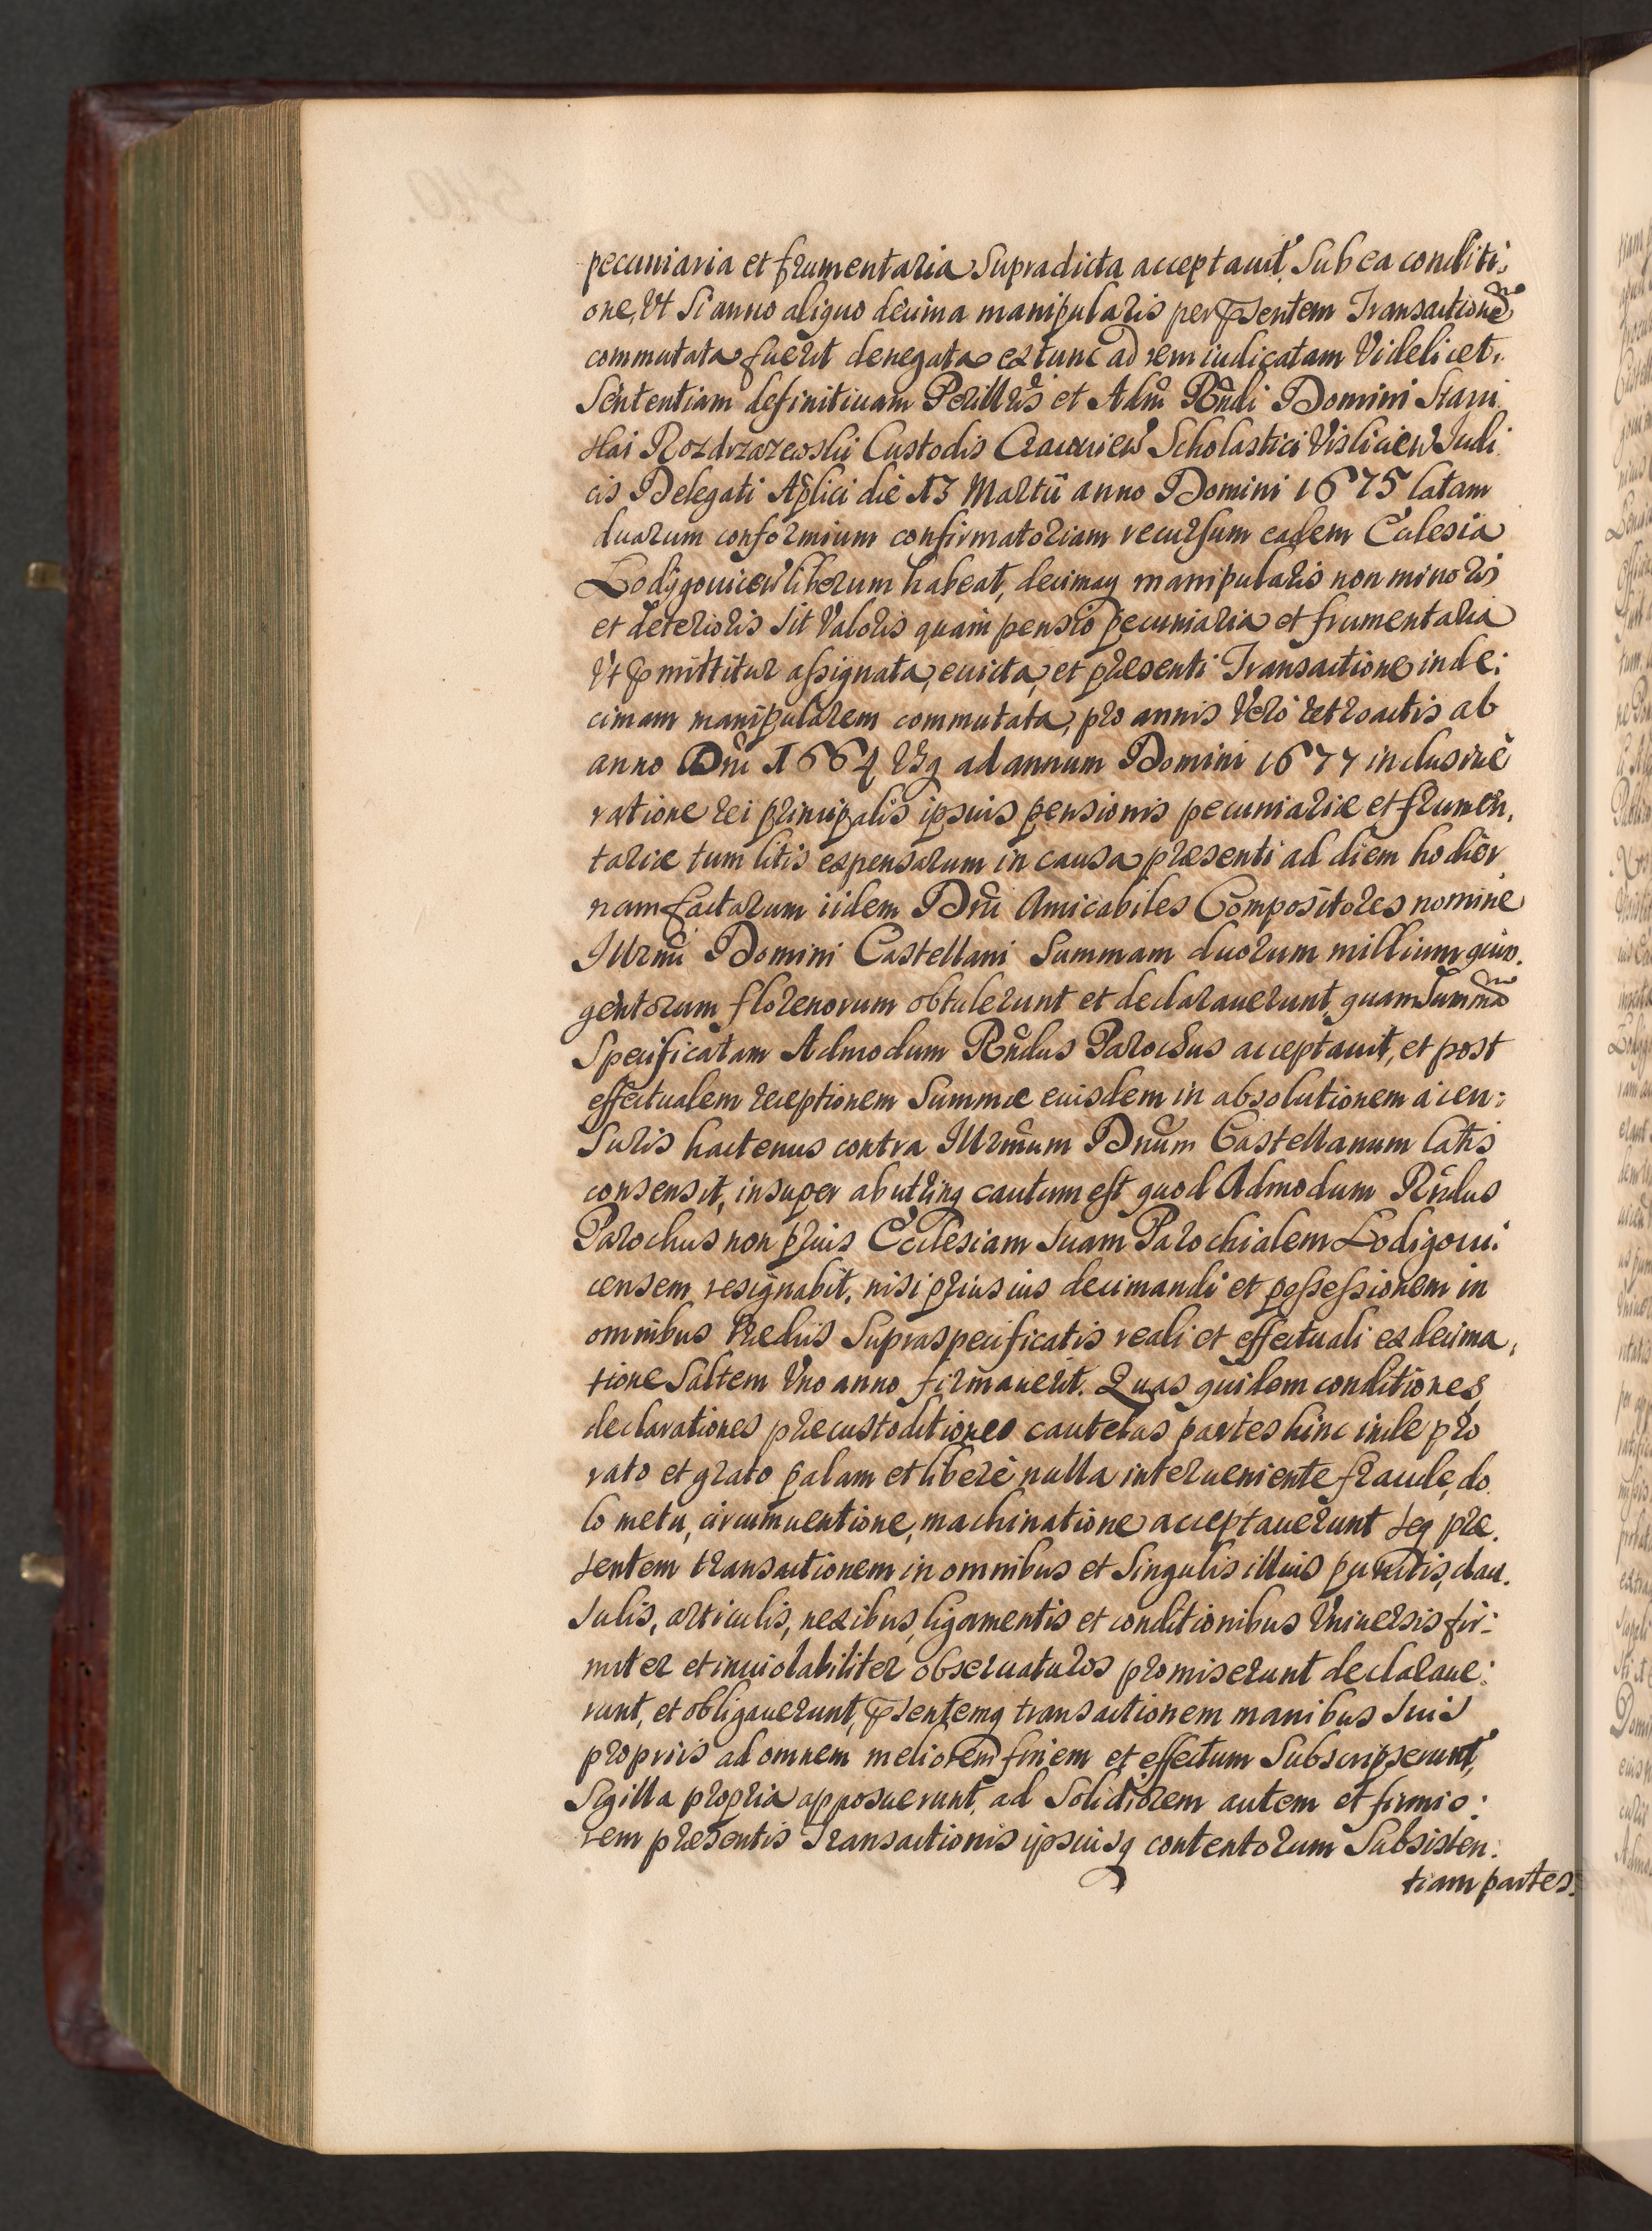 pecuniaria et frumentaria Supradicta acceptauit, Sub ea conditi:
one, Vt Si anno aliquo decima manipularis per pñsentem Transactionẽ
commutata fuerit denegata extunc ad rem iudicatam Videlicet.
Sententiam definitiuam Perillris et Adm̃ Rñdi Domini Stani
slai Rozdrzazewski Custodis Cracouieñ Scholastici Vislicieñ Iudi
cis Delegati Aplici die 13 Martii anno Domini 1675 latam
duarum conformium confirmatoriam recursum eadem Eclesia
Lodygouiceñ liberum habeat, decimaq manipularis non minoris
et deterioris sit Valoris quam pensio pecuniaria et frumentaria
Vt pmittitur assignata, euicta, et praesenti Transactione in de:
cimam manipularem commutata, pro annis Vero retroactis ab
anno Dni 1664 Vsq ad annum Domini 1677 inclusiuè
ratione rei principalis ipsius pensionis pecuniariae et frumen,
tariae tum litis expensarum in causa praesenti ad diem hodier
nam factarum iidem Dñi Amicabiles Compositores nomine
Illrmi Domini Castellani Summam duorum millium quin.
gentorum florenorum obtulerunt et declarauerunt, quam Summã
Specificatam Admodum Rñdus Parochus acceptauit, et post
effectualem receptionem Summae euisdem in absolutionem à cen:
Suris hactenus contra Illrmum Dnum Castellanum latis
consensit, insuper ab utrinq cautum est quod Admodum Rñdus
Parochus non prius Ecclesiam suam Parochialem Lodigoui:
censem resignabit, nisi prius ius decimandi et possessionem in
omnibus Praediis Supraspecificatis reali et effectuali ex decima,
tione Saltem Vno anno firmauerit. Quas quidem conditiones
declarationes praecustoditiones cautelas partes hinc inde pro
rato et grato palam et liberè nulla interueniente fraude, do
lo metu, circumuentione, machinatione acceptauerunt seq prae.
sentem transactionem in omnibus et Singulis illius punctis, clau.
sulis, articulis, nexibus, ligamentis et conditionibus Vniuersis fir:
miter et inuiolabiliter obseruaturos promiserunt declaraue:
runt, et obligauerunt, psentemq transactionem manibus suis
propriis ad omnem meliorem finem et effectum Subscripserunt,
Sigilla propria apposuerunt, ad Solidiorem autem et firmio:
rem praesentis Transactionis ipsiusq contentorum Subsisten:
tiam partes.